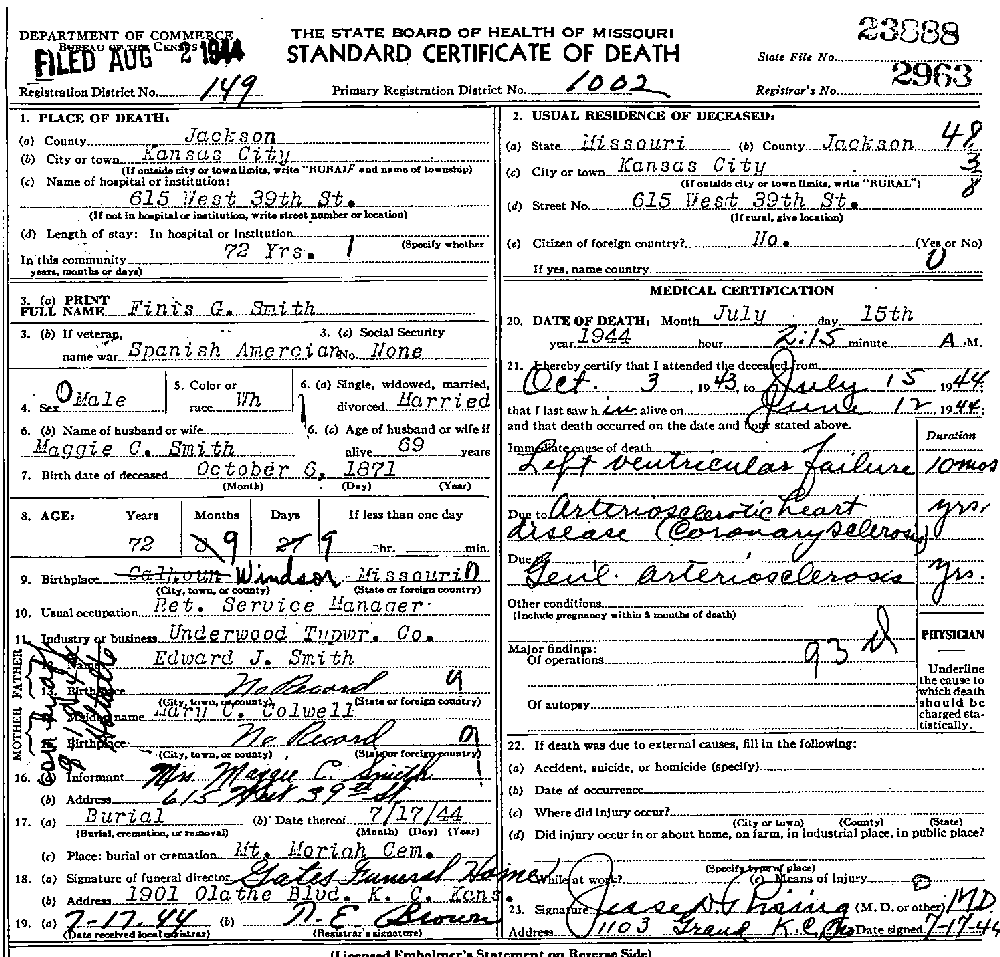 DEPARTMENT OF COMMERCE
BUREAU OF THE CENSUS
FILED AUG 2 1944
THE STATE BOARD OF HEALTH OF MISSOURI
STANDARD CERTIFICATE OF DEATH
State File No. 23888
Registration District No. 149
Primary Registration District No. 1002
Registrar's No. 2963
1. PLACE OF DEATH:
(a) County Jackson
(b) City or town Kansas City
(If outside city or town limits, write "RURAL" and name of township)
(c) Name of hospital or institution:
615 West 39th St.
(If not in hospital or institution, write street number or location)
(d) Length of stay: In hospital or institution
(Specify whether
In this community 72 Yrs.
years, months or days)
3. (a) PRINT FULL NAME Finis G. Smith
3. (b) If veteran, name war Spanish Amercian
3. (c) Social Security No. None
4. Sex Male
5. Color or race Wh
6. (a) Single, widowed, married, divorced Married
6. (b) Name of husband or wife Maggie C. Smith
6. (c) Age of husband or wife if alive 69 years
7. Birth date of deceased October 6, 1871
(Month) (Day) (Year)
8. AGE: Years Months Days If less than one day
72 9 9 hr. min.
9. Birthplace Calhoun Windsor Missouri
(City, town, or county) (State or foreign country)
10. Usual occupation Ret. Service Manager
11. Industry or business Underwood Typwr. Co.
FATHER
Edward J. Smith
13. Birthplace No Record 9
(City, town, or county) (State or foreign country)
MOTHER
Maiden name Mary C. Colwell
Birthplace No Record 9
(City, town, or county) (State or foreign country)
16. Informant Mrs. Maggie C. Smith
(b) Address 615 West 39th St
17. (a) Burial (b) Date thereof 7/17/44
(Burial, cremation, or removal) (Month) (Day) (Year)
(c) Place: burial or cremation Mt. Moriah Cem.
18. (a) Signature of funeral director Gates Funeral Home
(b) Address 1901 Olathe Blvd. K. C. Kans.
19. (a) 7-17-44 (b) D. E. Brown
(Date received local registrar) (Registrar's signature)
2. USUAL RESIDENCE OF DECEASED:
(a) State Missouri (b) County Jackson 48
(c) City or town Kansas City 3
(If outside city or town limits, write "RURAL") 8
(d) Street No. 615 West 39th St.
(If rural, give location)
(e) Citizen of foreign country? No. (Yes or No)
If yes, name country 0
MEDICAL CERTIFICATION
20. DATE OF DEATH: Month July day 15th
year 1944 hour 2:15 minute A M.
21. I hereby certify that I attended the deceased from
Oct. 3, 1943, to July 15 1944
that I last saw him alive on June 12, 1944;
and that death occurred on the date and hour stated above.
Duration
Immediate cause of death
Left ventricular failure 10 mos
Due to Arteriosclerotic heart yrs.
disease (Coronary sclerosis)
Due to
Gen'l. arteriosclerosis yrs.
Other conditions
(Include pregnancy within 3 months of death)
Major findings:
Of operations
93 d
Of autopsy
PHYSICIAN
Underline
the cause to
which death
should be
charged sta-
tistically.
22. If death was due to external causes, fill in the following:
(a) Accident, suicide, or homicide (specify)
(b) Date of occurrence
(c) Where did injury occur?
(City or town) (County) (State)
(d) Did injury occur in or about home, on farm, in industrial place, in public place?
(Specify type of place)
While at work? (e) Means of injury
23. Signature (M. D. or other) MD
Address 1103 Grand K.C. Mo Date signed 7-17-44
(Licensed Embalmer's Statement on Reverse Side)